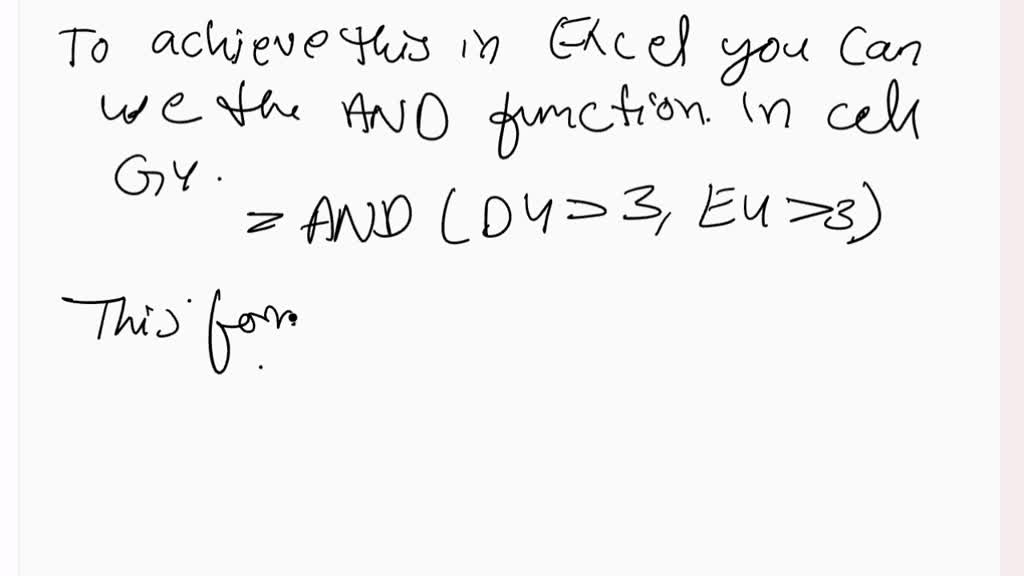 To achieve this in Excel you can
use the AND function. In cell
G4.
= AND (D4>3, E4>3)
This for